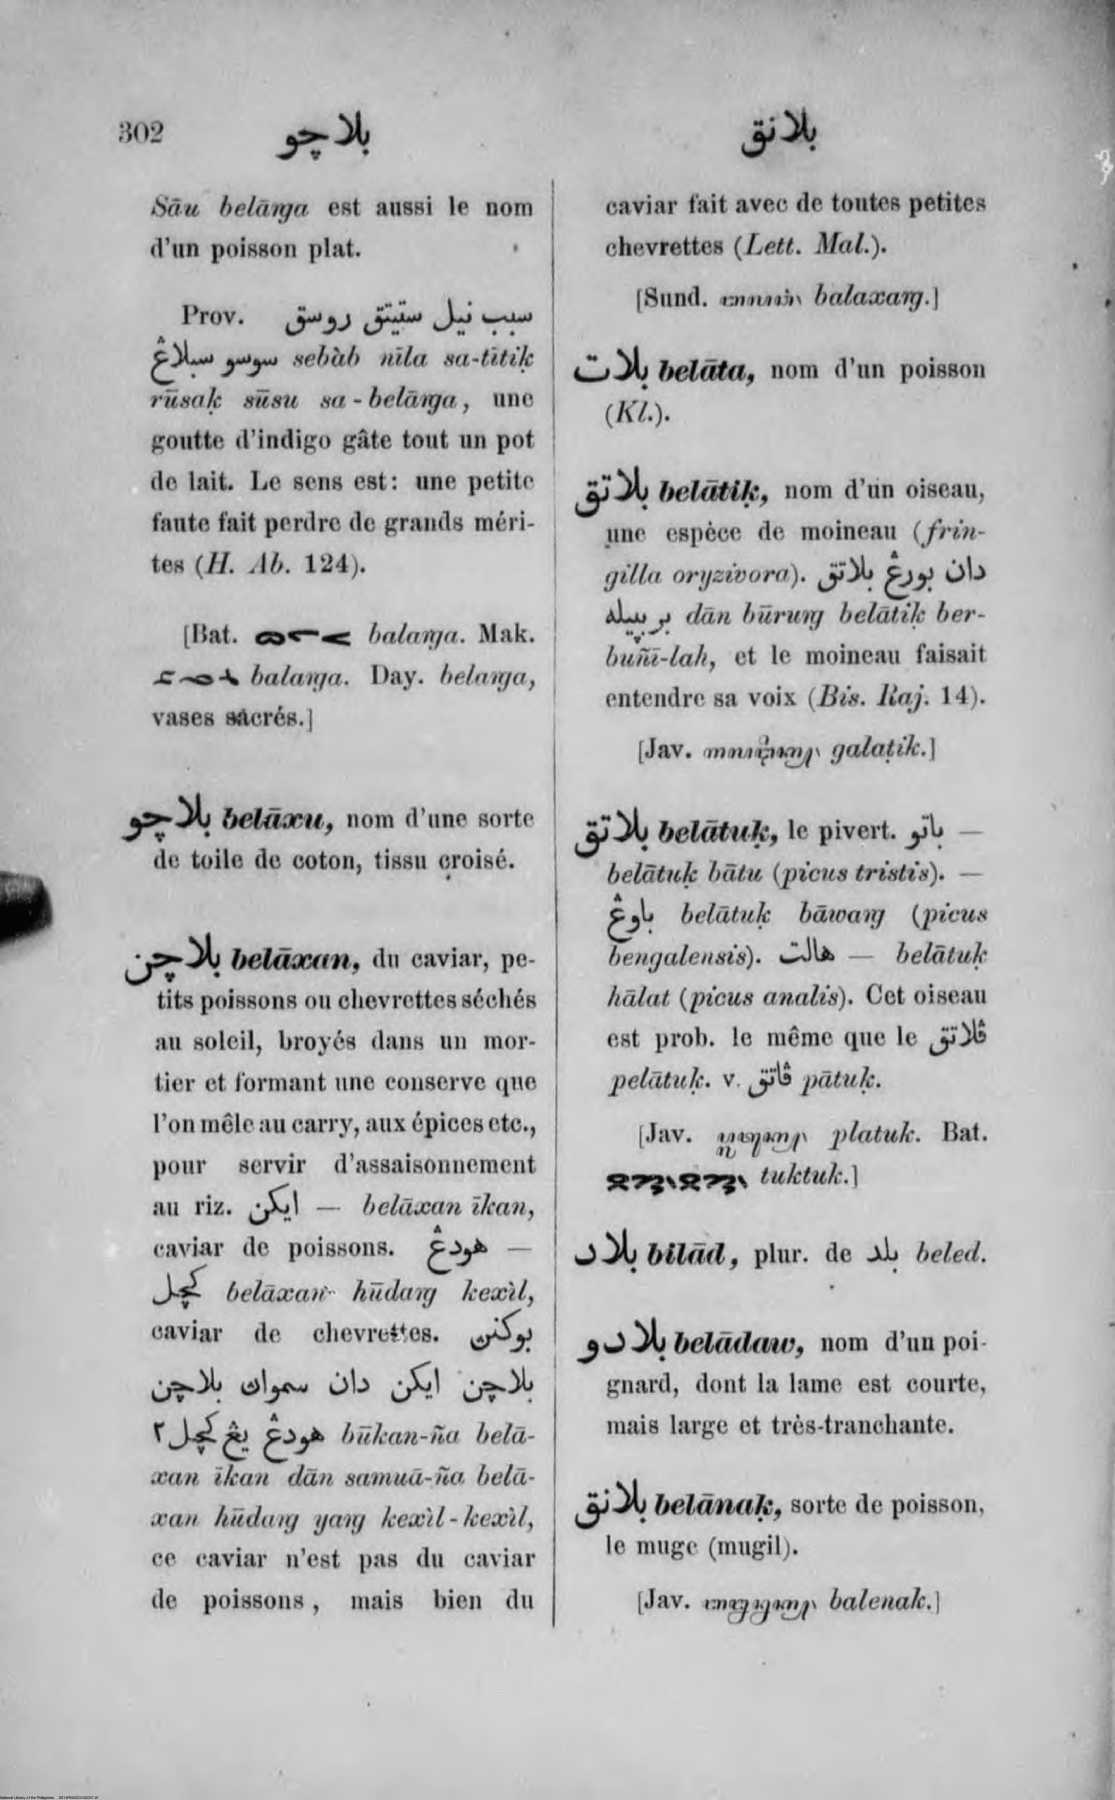 302
بلاچو
بلانق
Sāu belāṅga est aussi le nom
d'un poisson plat.
Prov. سبب نيل ستيتق روسق
سوسو سبلاڠ sebàb nīla sa-tītiḳ
rūsaḳ sūsu sa-belāṅga, une
goutte d'indigo gâte tout un pot
de lait. Le sens est: une petite
faute fait perdre de grands méri-
tes (H. Ab. 124).
[Bat. balaṅga. Mak.
balaṅga. Day. belaṅga,
vases sacrés.]
بلاچو belāxu, nom d'une sorte
de toile de coton, tissu croisé.
بلاچن belāxan, du caviar, pe-
tits poissons ou chevrettes séchés
au soleil, broyés dans un mor-
tier et formant une conserve que
l'on mêle au carry, aux épices etc.,
pour servir d'assaisonnement
au riz. ايكن — belāxan īkan,
caviar de poissons. هودڠ —
كچل belāxan hūdaṅg kexìl,
caviar de chevrettes. بوكنن
بلاچن ايكن دان سموان بلاچن
هودڠ يڠ كچل٢ būkan-ña belā-
xan īkan dān samuā-ña belā-
xan hūdaṅg yaṅg kexìl-kexìl,
ce caviar n'est pas du caviar
de poissons, mais bien du
caviar fait avec de toutes petites
chevrettes (Lett. Mal.).
[Sund. balaxaṅg.]
بلات belāta, nom d'un poisson
(Kl.).
بلاتق belātiḳ, nom d'un oiseau,
une espèce de moineau (frin-
gilla oryzivora). دان بورڠ بلاتق
بربپيله dān būruṅg belātiḳ ber-
buñī-lah, et le moineau faisait
entendre sa voix (Bis. Raj. 14).
[Jav. galaṭik.]
بلاتق belātuḳ, le pivert. باتو —
belātuḳ bātu (picus tristis). —
باوڠ belātuḳ bāwaṅg (picus
bengalensis). هالت — belātuḳ
hālat (picus analis). Cet oiseau
est prob. le même que le ڤلاتق
pelātuḳ. v. ڤاتق pātuḳ.
[Jav. platuk. Bat.
tuktuk.]
بلاد bilād, plur. de بلد beled.
بلادو belādaw, nom d'un poi-
gnard, dont la lame est courte,
mais large et très-tranchante.
بلانق belānaḳ, sorte de poisson,
le muge (mugil).
[Jav. balenak.]